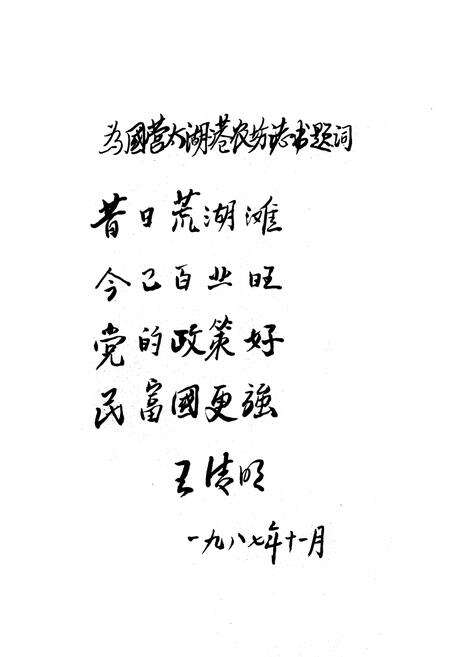 为國营太湖港农场志书题词
昔日荒湖滩
今已百业旺
党的政策好
民富國更強
王清明
一九八七年十一月